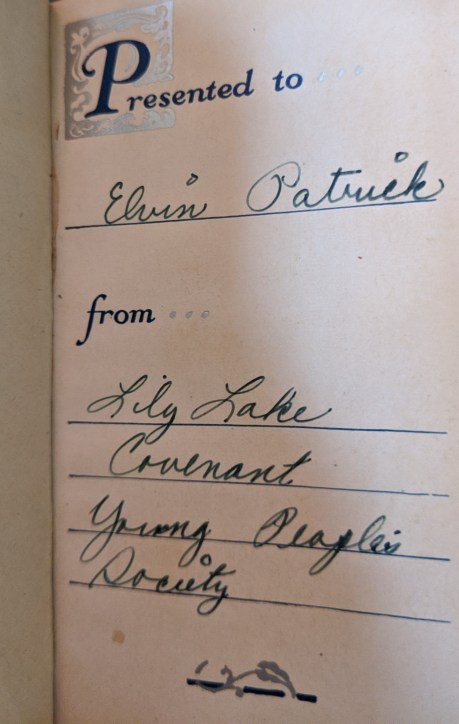 Presented to ...
Elvin Patrick
from ...
Lily Lake
Covenant
Young People's
Society